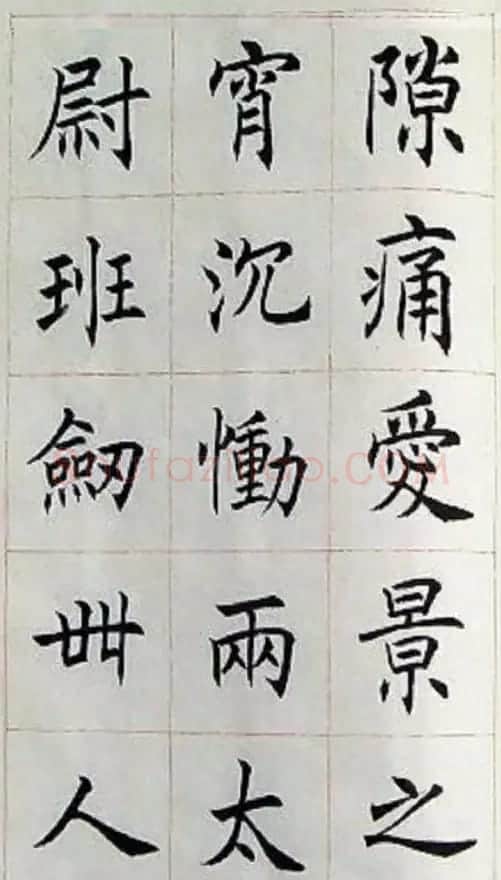 隙痛愛景之
宵沉慟兩太
尉班劒卌人